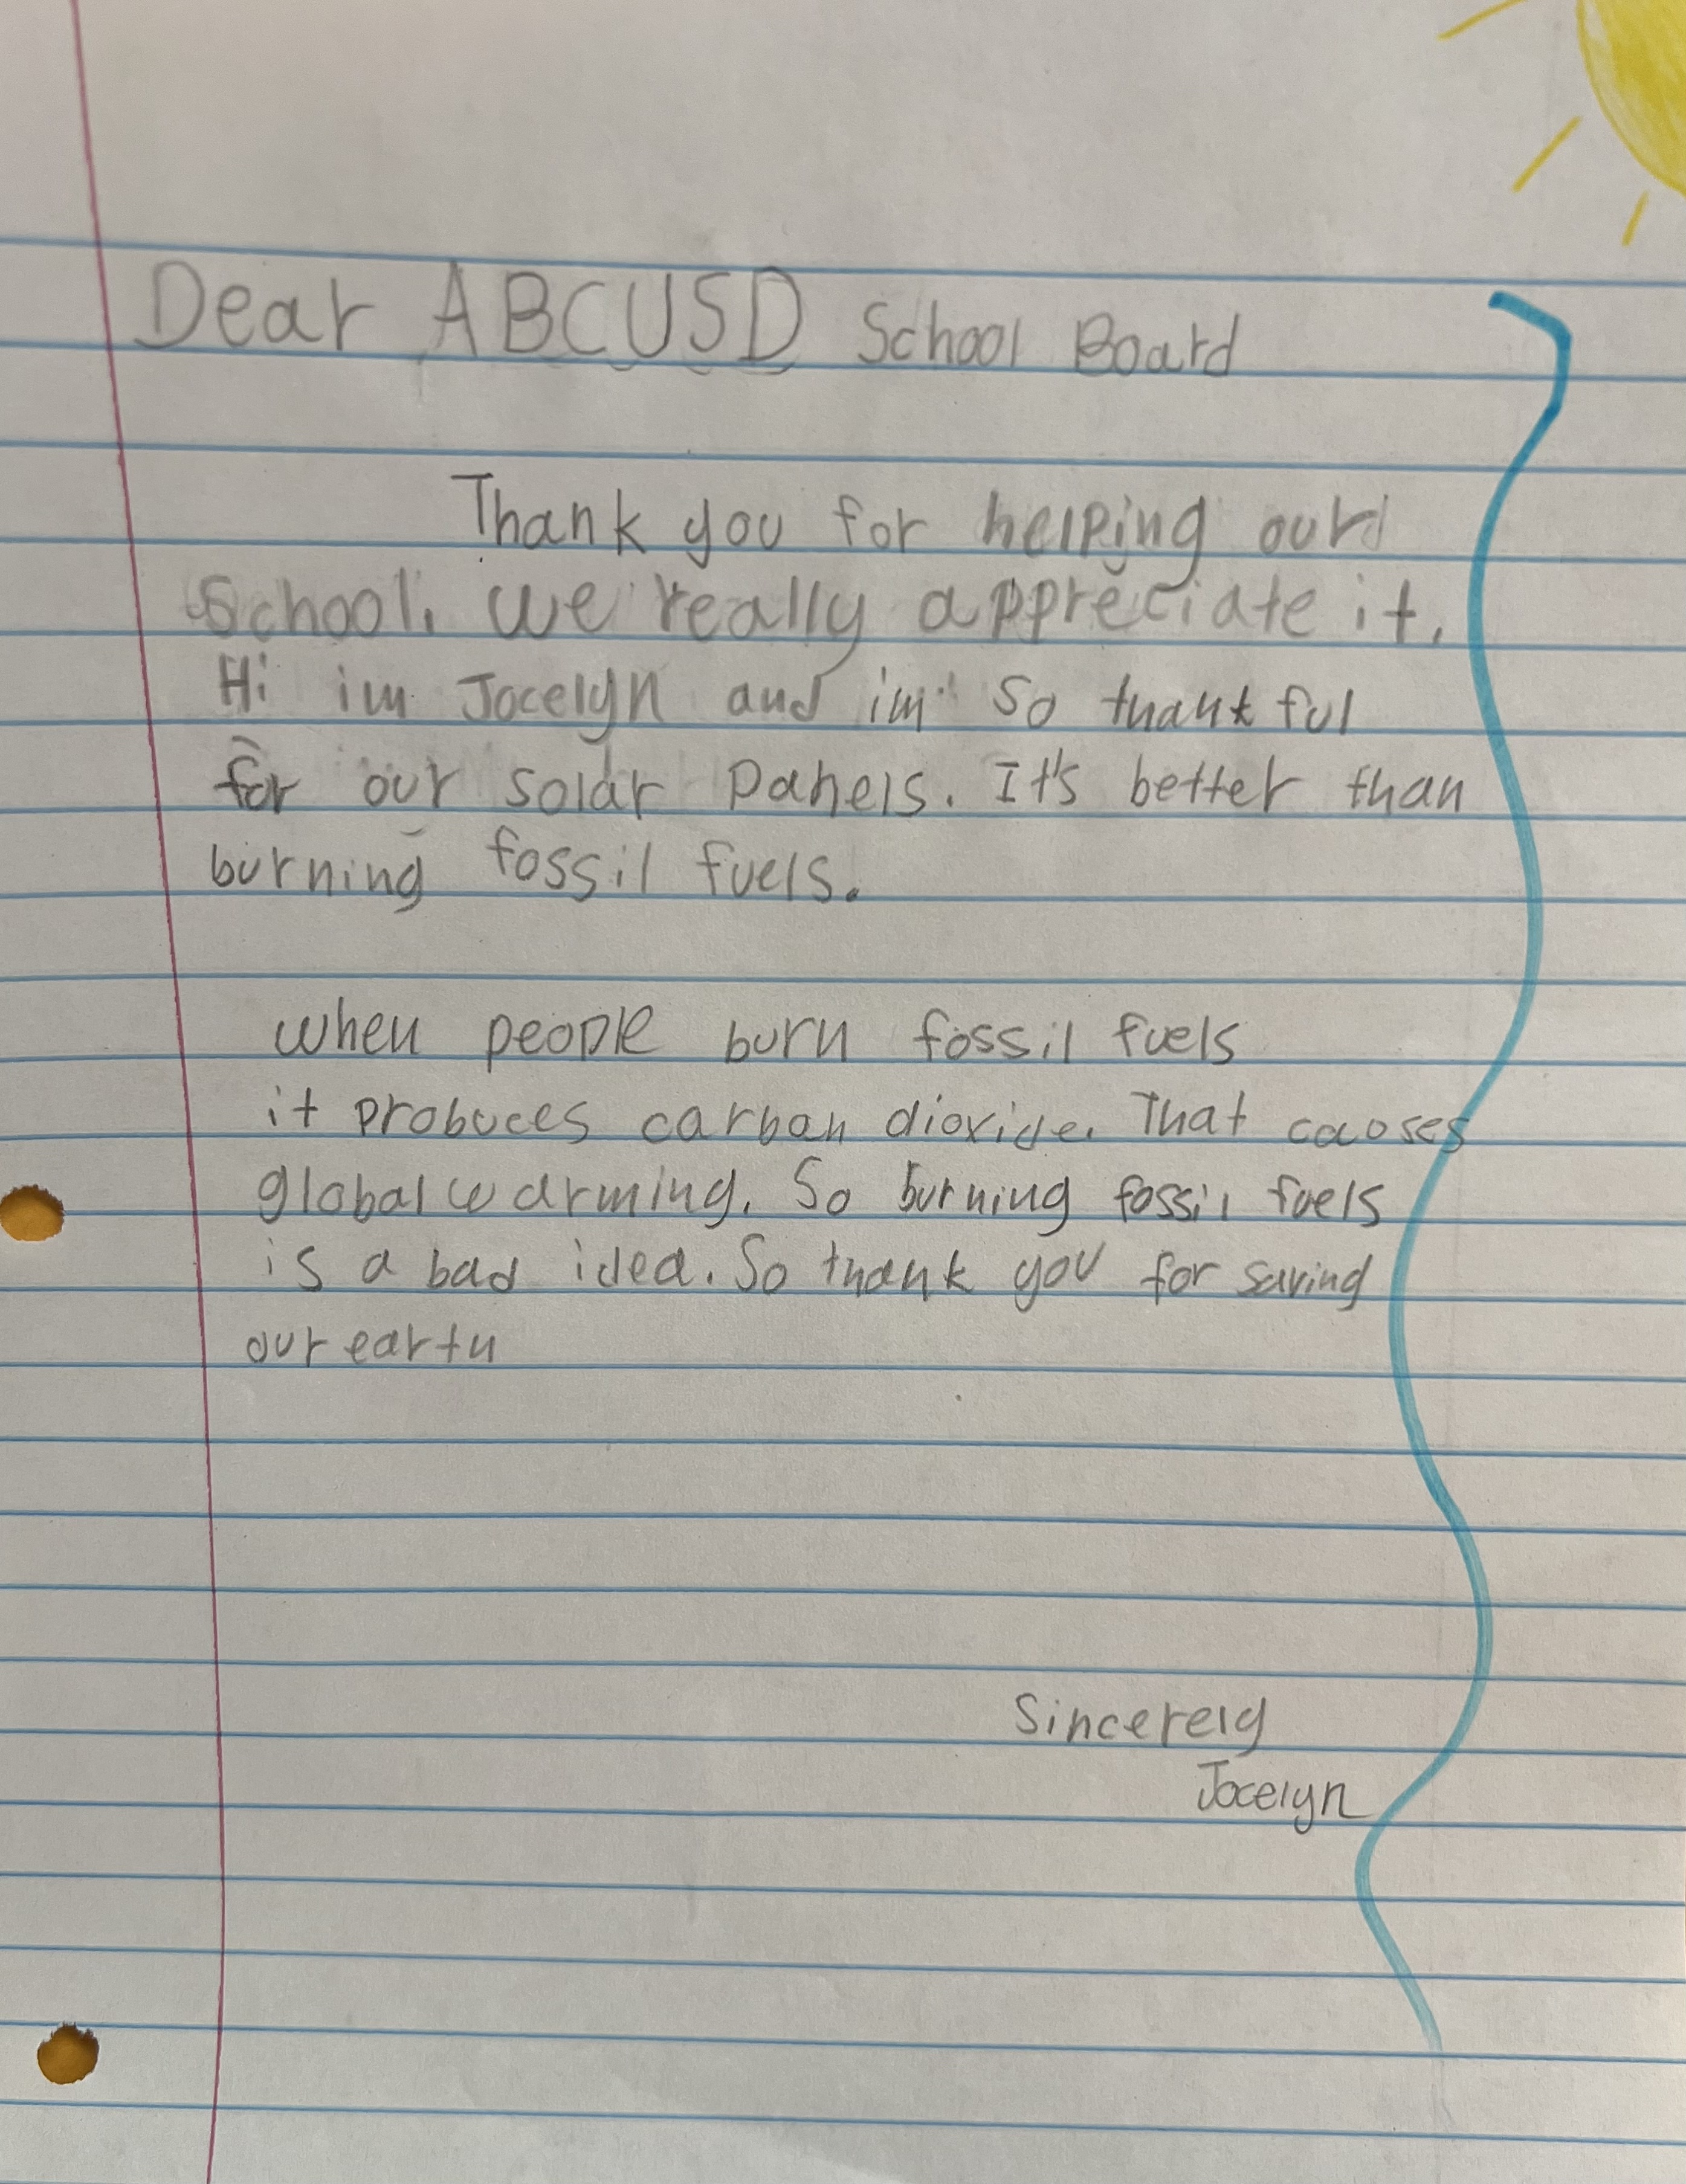 Dear ABCUSD School Board
Thank you for helping our
School. we really appreciate it.
Hi im Jocelyn and im so thankful
for our solar panels. It's better than
burning fossil fuels.
when people burn fossil fuels
it produces carban dioxide. That causes
global warming. So burning fossil fuels
is a bad idea. So thank you for saving
our earth
Sincerely
Jocelyn